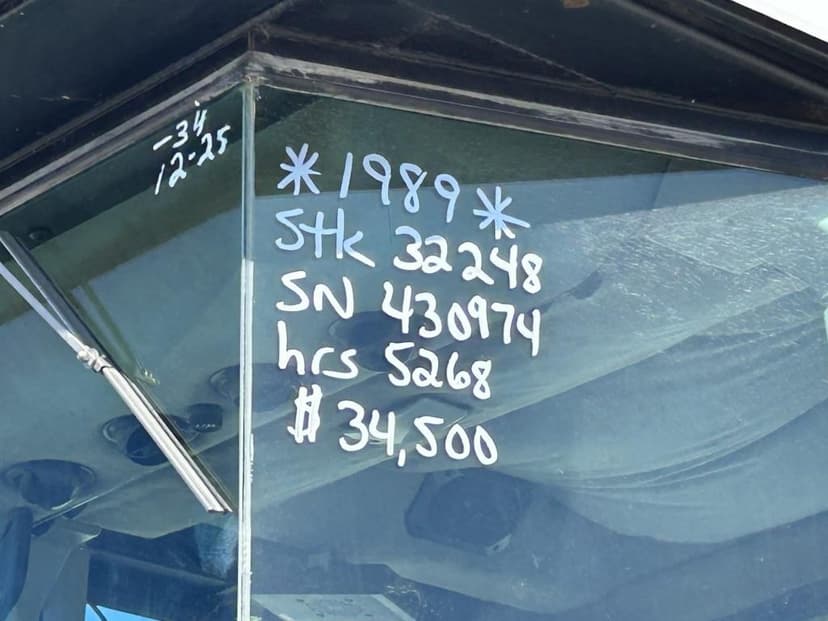 -34
12-25
*1989*
Stk 32248
SN 430974
hrs 5268
$ 34,500